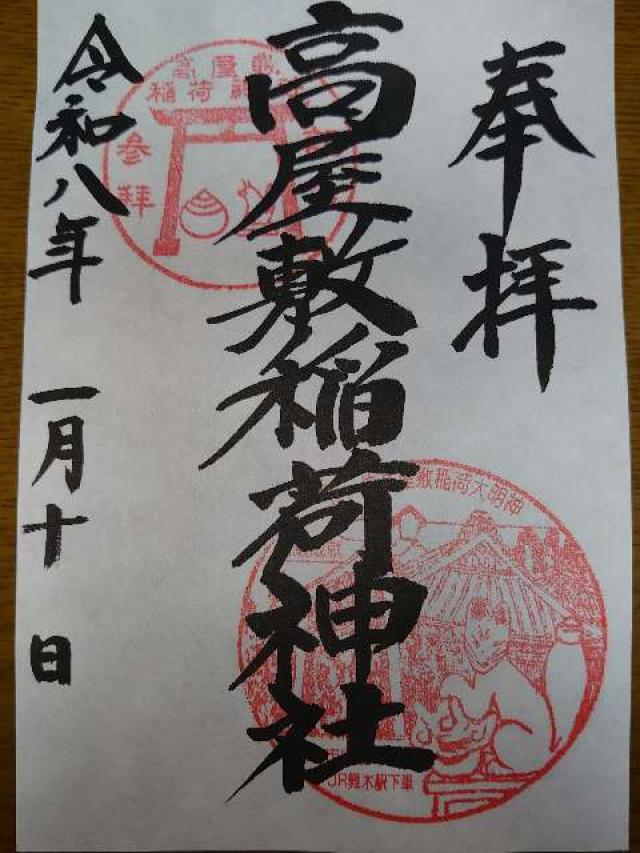 奉拝
高屋敷稲荷神社
令和八年 一月十日
高屋敷
稲荷神社
参拝
敷稲荷大明神
JR舞木駅下車